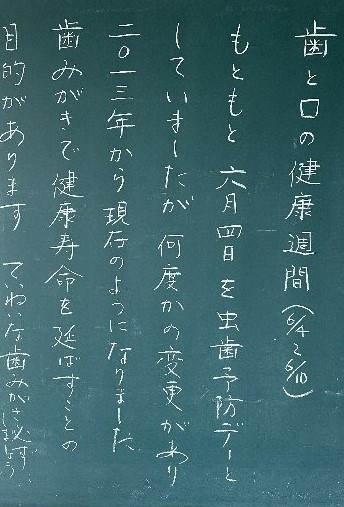 歯と口の健康週間(6/4〜6/10)
もともと六月四日を虫歯予防デーと
していましたが何度かの変更があり
二〇一三年から現在のようになりました
歯みがきで健康寿命を延ばすことの
目的があります ていねいな歯みがき必ずしましょう